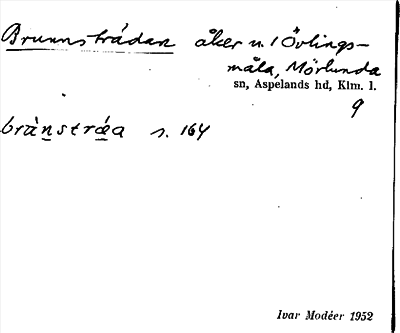 Brunnstrådan åker u. 1 Övlings-
måla, Mörlunda
sn, Aspelands hd, Klm. l.
9
brànstræa s. 164
Ivar Modéer 1952